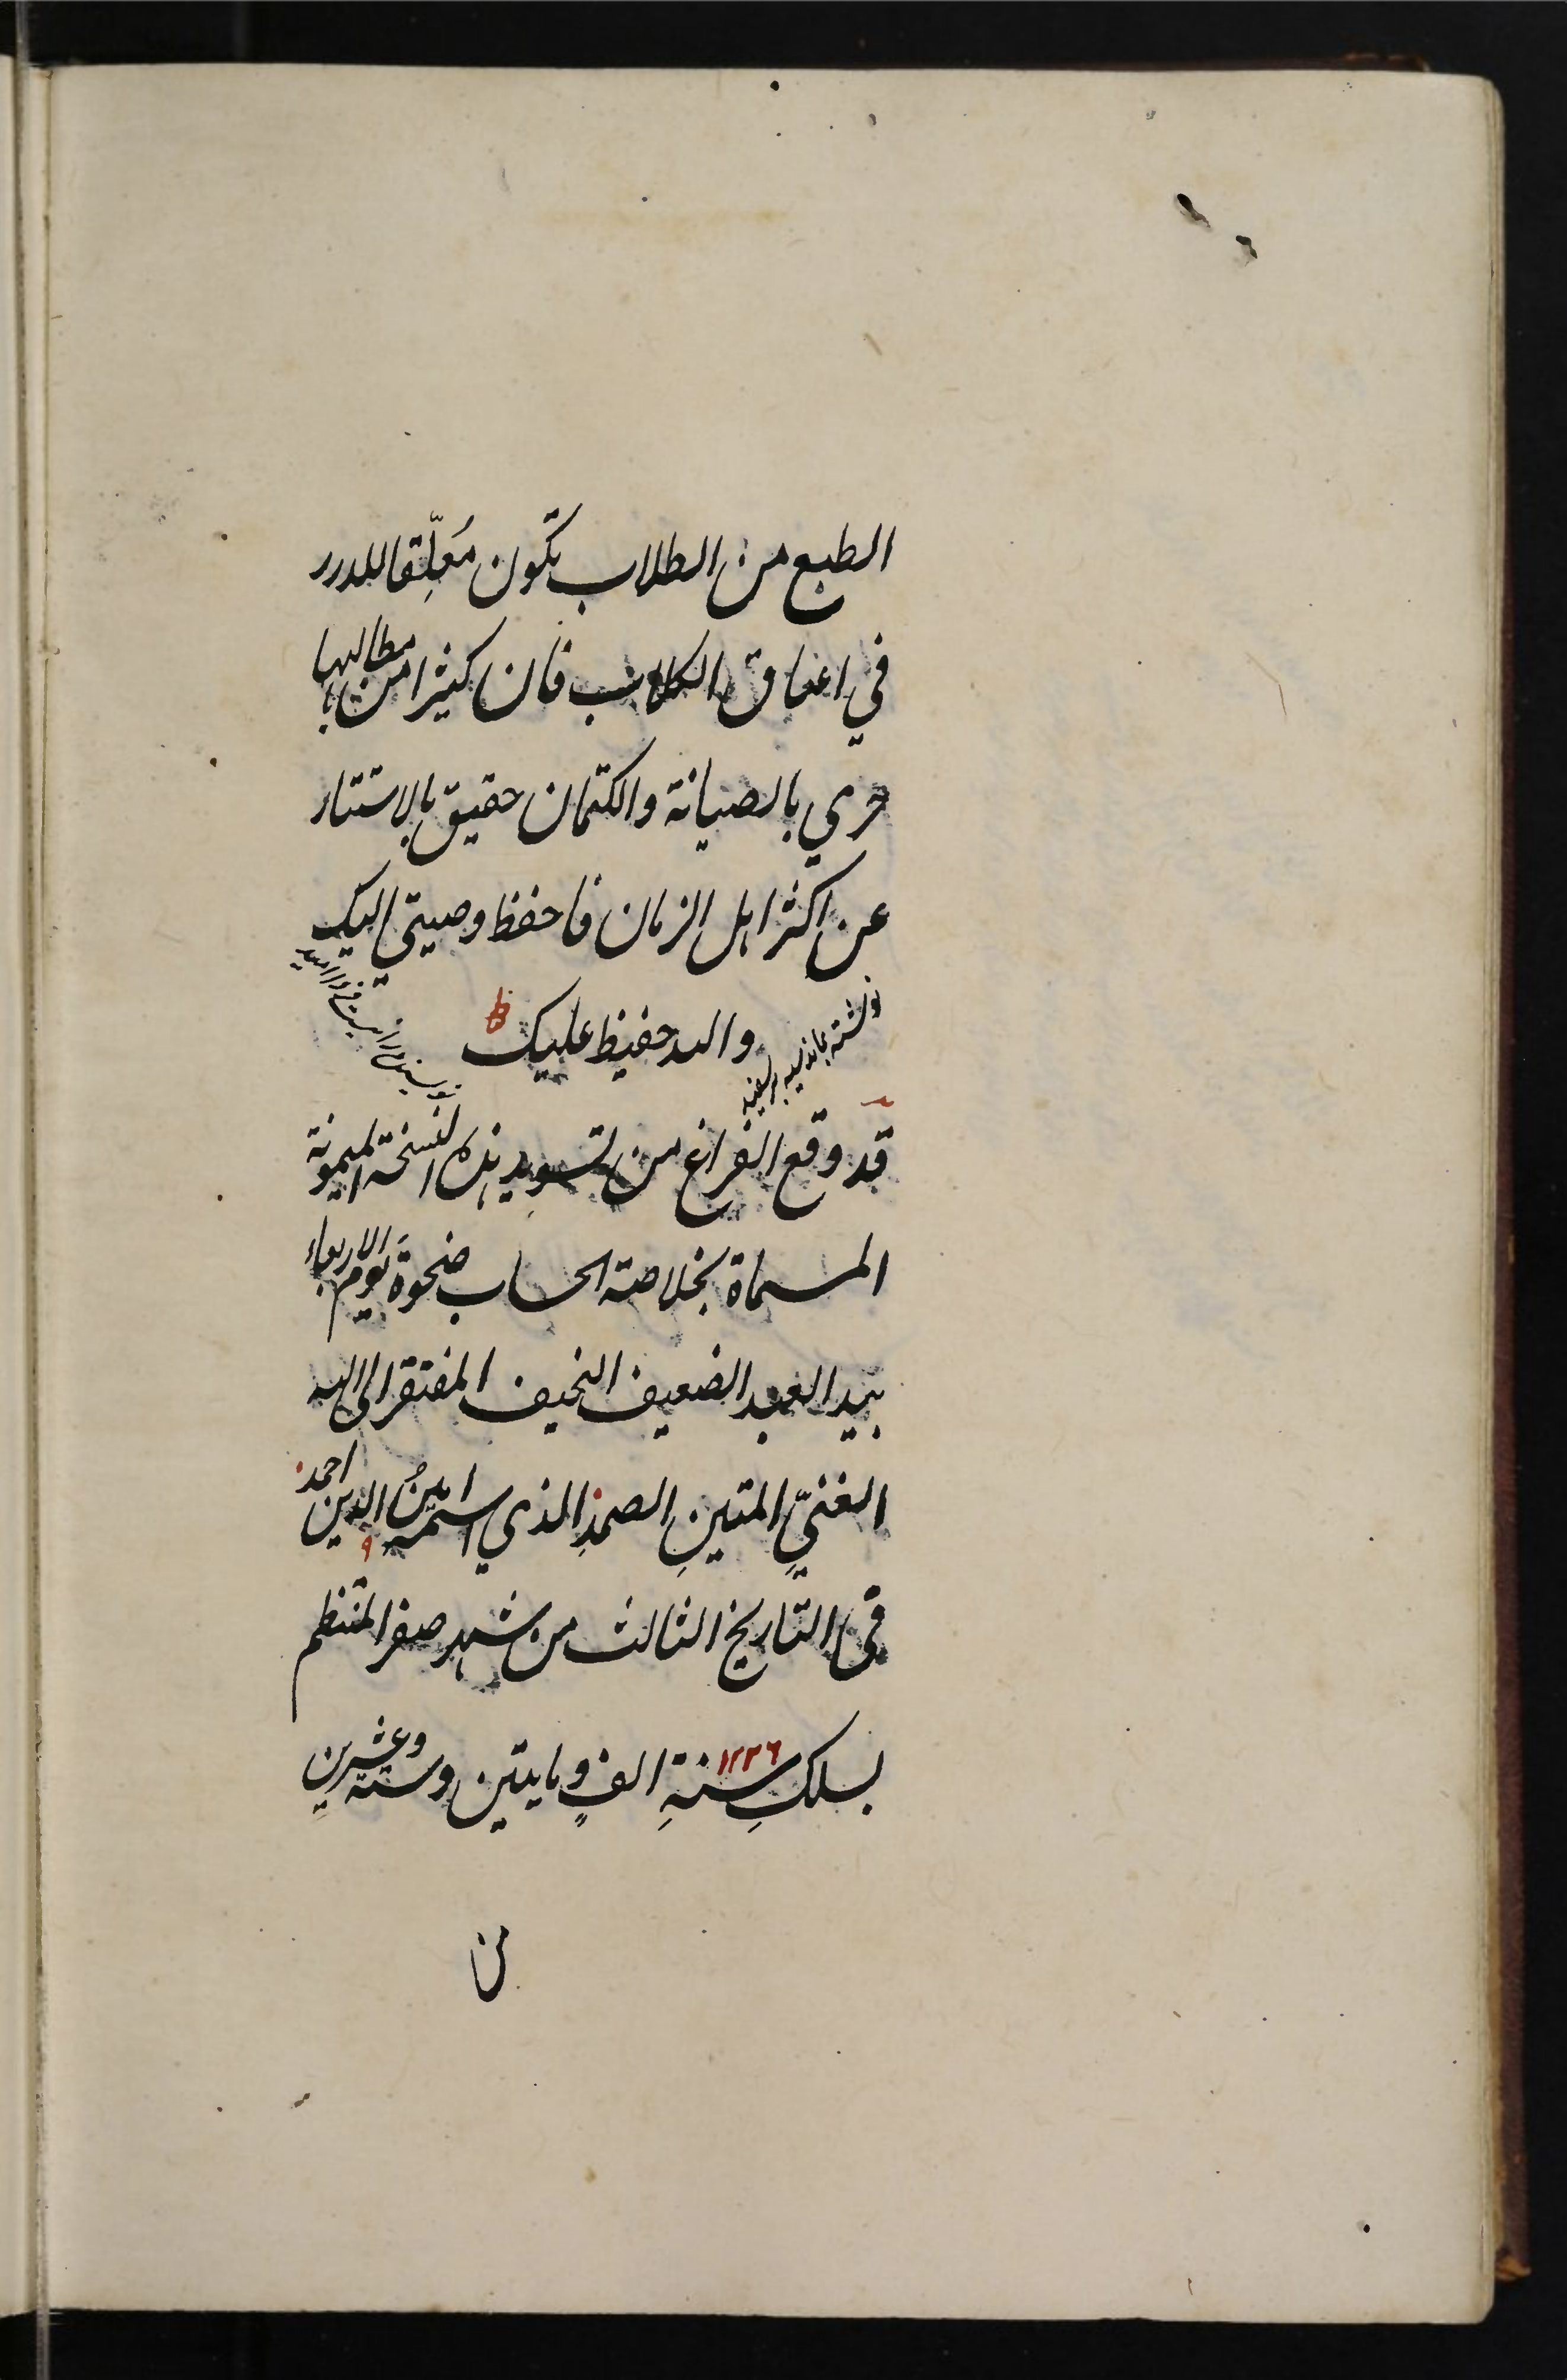 الطبع من الطلاب تكون مُعلِّقا للدرر
في اعناق الكلاب فان كثيرا من مطالبها
حري بالصيانة والكتمان حقيق بالاستتار
عن اكثر اهل الزمان فاحفظ وصيتي اليك
والله حفيظ عليك
نوشته بماند سیه بر سفید
نویسنده را نیست فردا امید
قد وقع الفراغ من تسويد هذه النسخة الميمونة
المسماة بخلاصة الحساب ضحوة يوم الاربعاء
بيد العبد الضعيف النحيف المفتقر الى الله
الغنيِّ المتينِ الصمدِ الذي اسمه امينُ الدين احمد
في التاريخ الثالث من شهر صفر المنتظم
بسلكِ سنةِ الفٍ ومايتين وستة وعشرين
١٢٢٦